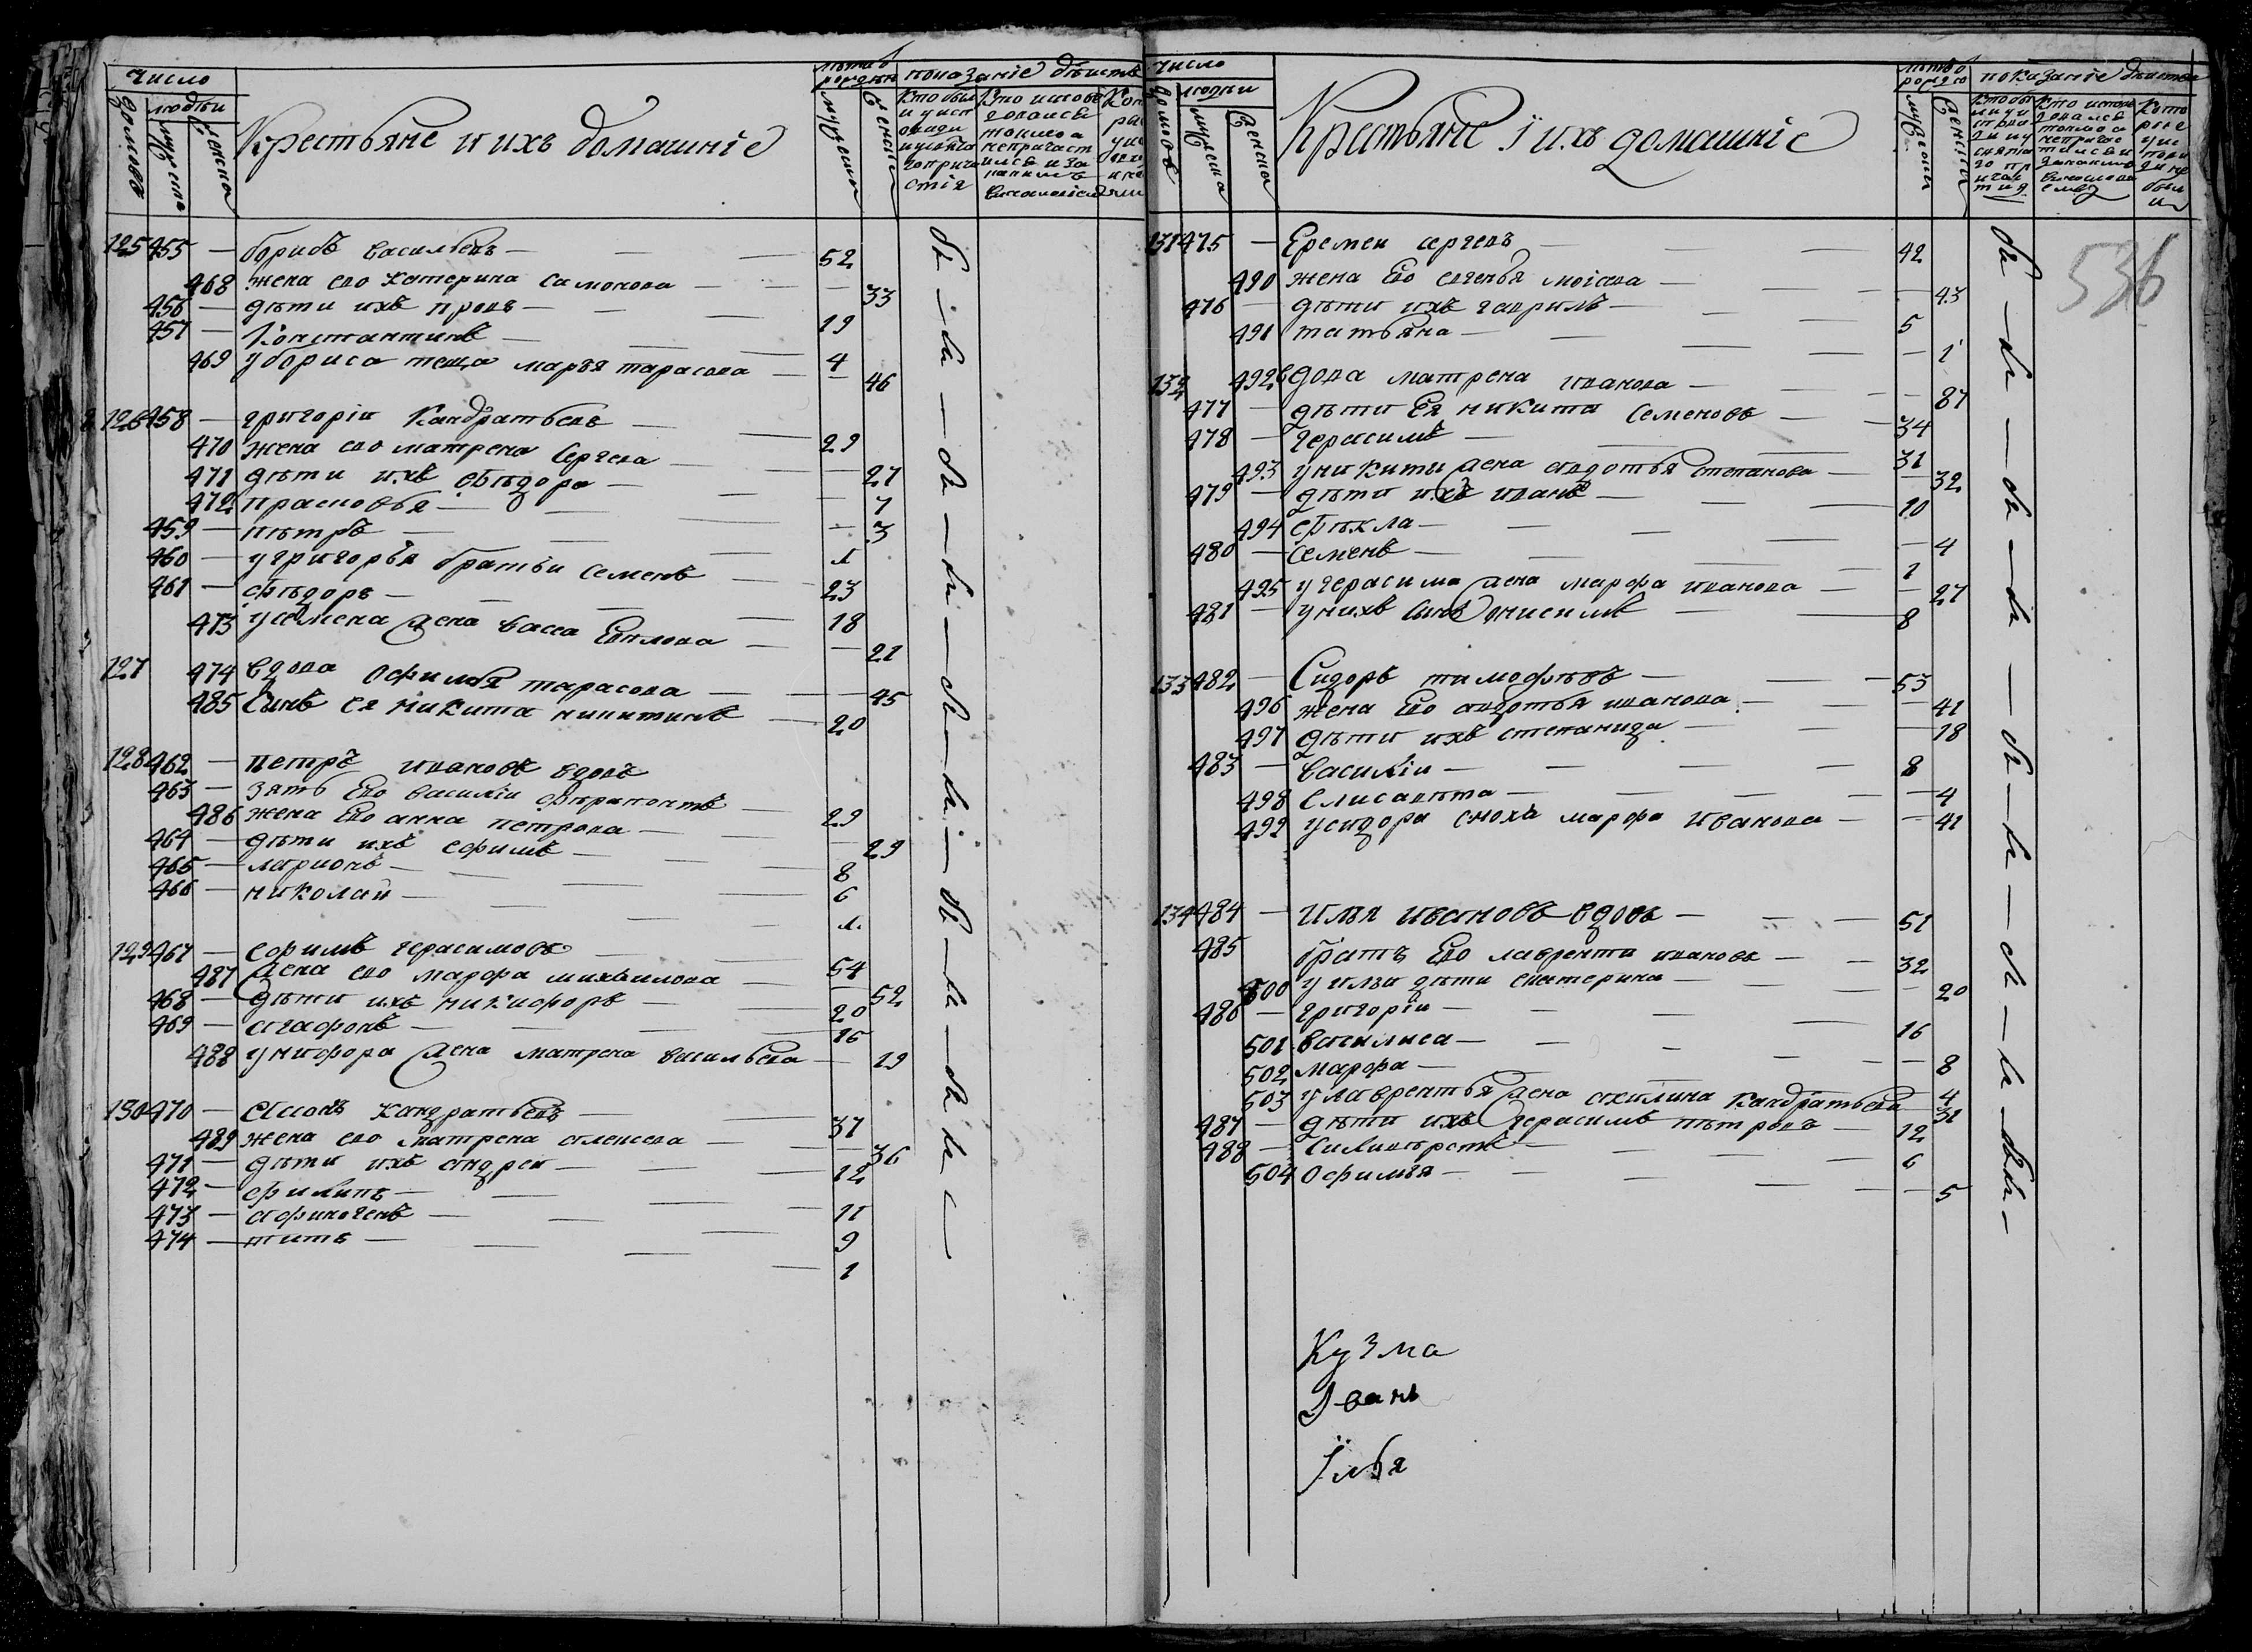 число
домовъ
людѣи
мужеска
женска
Крестьяне и ихъ домашніе
показаніе
125 455 — борисъ васильевъ — 52
468 жена ево катерина самонова — 33
456 — дѣти ихъ провъ — 19
457 — Константинъ — 4
469 у бориса теща марья тарасова — 46
126 458 — григоріи Кандратьевъ — 29
470 жена ево матрена Сергева — 27
471 дѣти ихъ Ѳѣдора — 7
472 прасковья — 3
459 — пѣтръ — 1
460 — у григорья братьи семенъ — 23
461 — ѳѣдоръ — 18
473 у семена жена васса — 21
127 474 вдова офимья тарасова — 45
485 Сынъ ея никита никитинъ — 20
128 462 — петръ ивановъ вдовъ
463 — зять Ево василіи — 29
486 жена Ево анна петрова — 29
464 — дѣти ихъ ефимъ — 8
465 — ларионъ — 6
466 — николаи — 1
129 467 — ефимъ герасимовъ 54
487 жена ево марфа михаилова — 52
468 — дѣти ихъ никифоръ — 20
469 — агафонъ — 16
488 у нифора жена матрена васильева — 19
130 470 — Кандратьевъ — 37
489 жена ево матрена алексева — 36
471 — дѣти ихъ андреи — 12
472 — филипъ — 11
473 — афиногенъ — 9
474 — титъ — 1
число
домовъ
людѣи
мужеска
женска
Крестьяне і ихъ домашніе
показаніе
536
131 475 — Еремеи сергевъ — 42
490 жена Ево евгенья моісева — 43
476 — дѣти ихъ гаврилъ — 5
491 татьяна — 1
132 492 вдова матрена иванова — 87
477 — дѣти Ея никита семеновъ — 34
478 — герасимъ — 31
493 у никиты жена авдотья степанова — 32
479 — дѣти ихъ иванъ — 10
494 Ѳѣкла — 4
480 — семенъ — 1
495 у герасима жена марфа иванова — 27
481 — у нихъ Сынъ онисимъ — 8
133 482 — Сидоръ тимофѣевъ — 53
496 жена Ево авдотья иванова — 41
497 дѣти ихъ степанида — 18
483 — василіи — 8
498 елисавѣта — 4
499 у сидора сноха марфа иванова — 41
134 484 — илья ивановъ вдовъ — 51
485 братъ Ево лаврентіи ивановъ — 32
500 у ильи дѣти екатерина — 20
486 — григоріи — 16
501 василиса — 8
502 марфа — 4
503 у лаврентья жена акилина кандратьева 31
487 — дѣти ихъ герасимъ пѣтровъ — 12
488 — Силивѣрстъ — 6
504 офимья — 5
Кузма
Іванъ
Їлья